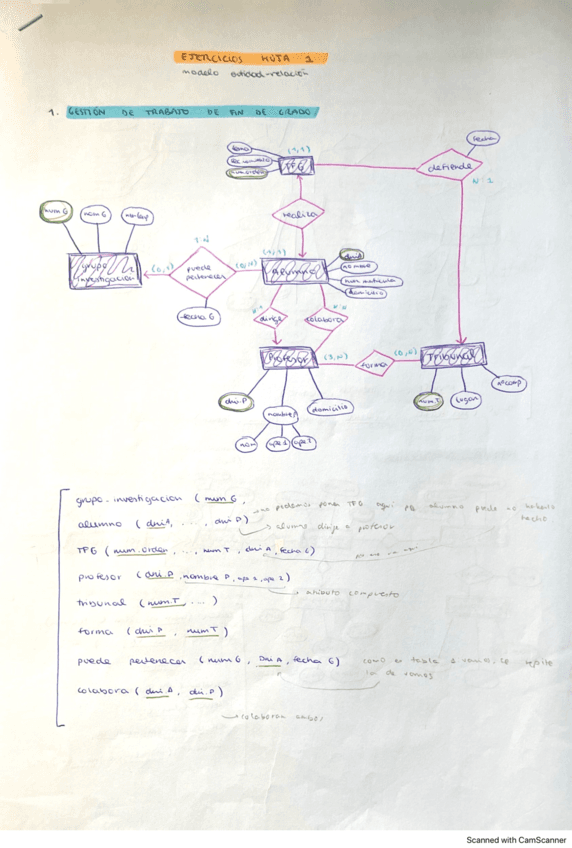 EJERCICIOS HOJA 1
modelo entidad-relación
1. GESTIÓN DE TRABAJO DE FIN DE GRADO
fecha
(1,1)
tema
num.orden
TFG
defiende
N:1
realiza
num G
nom G
1:N
(0,1)
(0,N)
(1,1)
grupo investigacion
puede pertenecer
Alumno
dni A
nombre
num matricula
domicilio
fecha G
N:1
N:N
dirige
colabora
Profesor
(3,N)
forma
(0,N)
Tribunal
dni.P
nombreP
domicilio
num.T
lugar
nºcomp
nom
ape 1
ape 2
grupo-investigacion (num G,
no podemos poner TFG aqui pq alumno puede no haberlo hecho
alumno (dni A, ..., dni P)
alumno dirige a profesor
TFG (num.orden, ..., num T, dni A, fecha G)
profesor (dni.P, nombre P, ape 1, ape 2)
atributo compuesto
tribunal (num.T, ...)
forma (dni P, num T)
puede pertenecer (num G, Dni A, fecha G) como es tabla
colabora (dni.A, dni.P)
colaboran ambos
Scanned with CamScanner